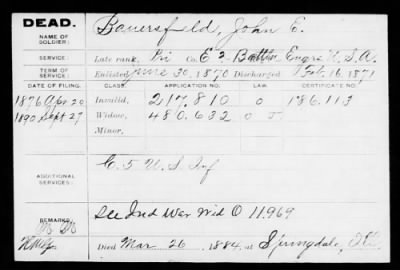 DEAD.
NAME OF SOLDIER: Bauersfeld, John E.
SERVICE: Late rank, Pri Co. E 2 Battn Engrs U.S.A.
TERM OF SERVICE: Enlisted June 30, 1870 Discharged Feb. 16, 1871
DATE OF FILING. CLASS. APPLICATION NO. LAW. CERTIFICATE NO.
1876 Apr 20 Invalid, 217.810 0 186.113
1890 Sept 27 Widow, 480.632 0
Minor,
ADDITIONAL SERVICES: C. 5 U.S. Inf
REMARKS: See Ind War Wid O 11.969
Died Mar. 26, 1884, at Springdale,